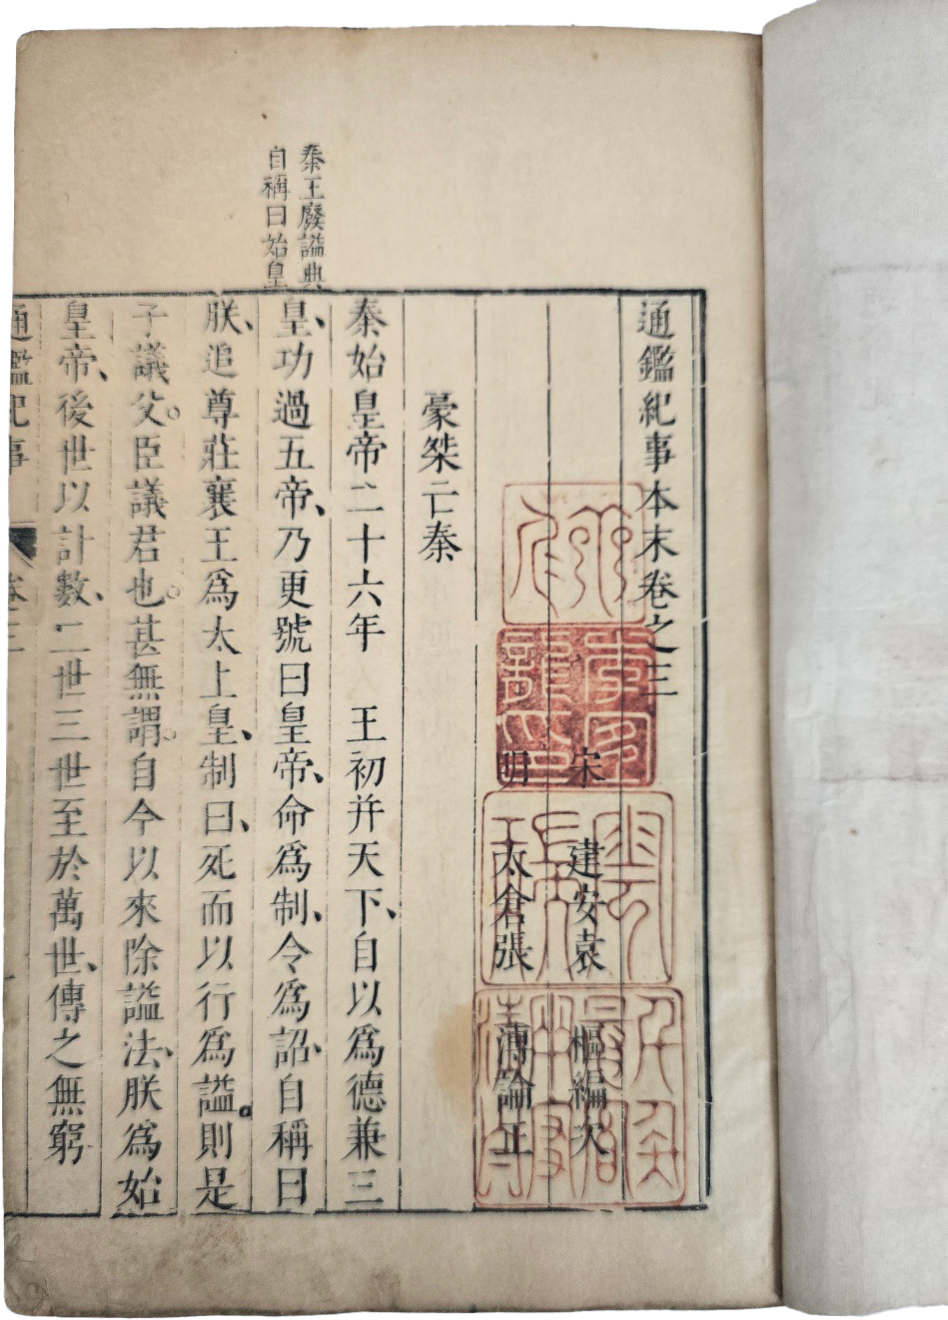 通鑑紀事本末卷之三
宋 建安袁 樞編次
明 太倉張 溥論正
豪桀亡秦
秦王廢謚典
自稱曰始皇
秦始皇帝二十六年 王初并天下、自以爲德兼三
皇、功過五帝、乃更號曰皇帝、命爲制、令爲詔、自稱曰
朕、追尊莊襄王爲太上皇、制曰、死而以行爲謚。則是
子議父。臣議君也。甚無謂。自今以來除謚法、朕爲始
皇帝、後世以計數、二世三世至於萬世、傳之無窮
通鑑紀事 卷三